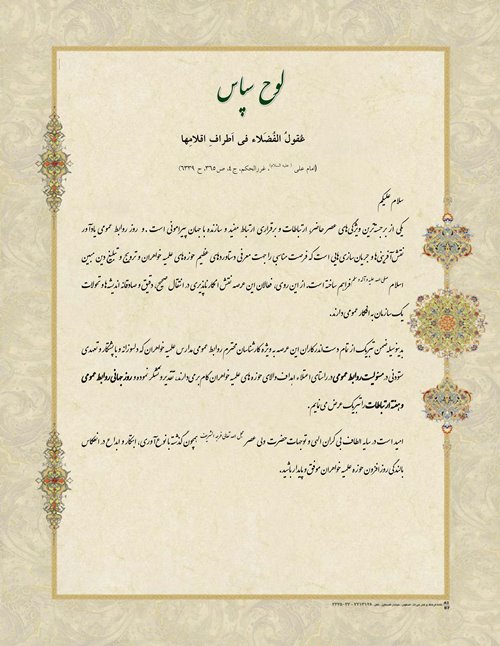 لوح سپاس
عُقولُ الفُضَلاء فی اَطرافِ اقلامِها
(امام علی (علیه السلام)، غررالحکم، ج ٤، ص ٣٦٥، ح ٦٣٣٩)
سلام علیکم
یکی از برجسته‌ترین ویژگی‌های عصر حاضر، ارتباطات و برقراری ارتباط مفید و سازنده با جهان پیرامونی است. و روز روابط عمومی یادآور
نقش آفرینی‌ها و جریان سازی‌هایی است که فرصت مناسبی را جهت معرفی دستاوردهای عظیم حوزه‌های علمیه خواهران و ترویج و تبلیغ دین مبین
اسلام صلی الله علیه و آله و سلم فراهم ساخته است. از این روی، فعالان این عرصه نقش انکارناپذیری در انتقال صحیح، دقیق و صادقانه اندیشه‌ها و تحولات
یک سازمان به افکار عمومی دارند.
بدینوسیله ضمن تبریک از تمام دست اندرکاران این عرصه به ویژه کارشناسان محترم روابط عمومی مدارس علمیه خواهران که دلسوزانه و با پشتکار و تعهدی
ستودنی در مسئولیت روابط عمومی در راستای اعتلاء اهداف والای حوزه‌های علمیه خواهران گام برمی‌دارند، تقدیر و تشکر نموده و روز جهانی روابط عمومی
و هفته ارتباطات را تبریک عرض می‌نمایم.
امید است در سایه الطاف بی کران الهی و توجهات حضرت ولی عصر عجل الله تعالی فرجه الشریف همچون گذشته با نوع آوری، ابتکار و ابداع در انعکاس
بالندگی روزافزون حوزه علمیه خواهران موفق و پایدار باشید.